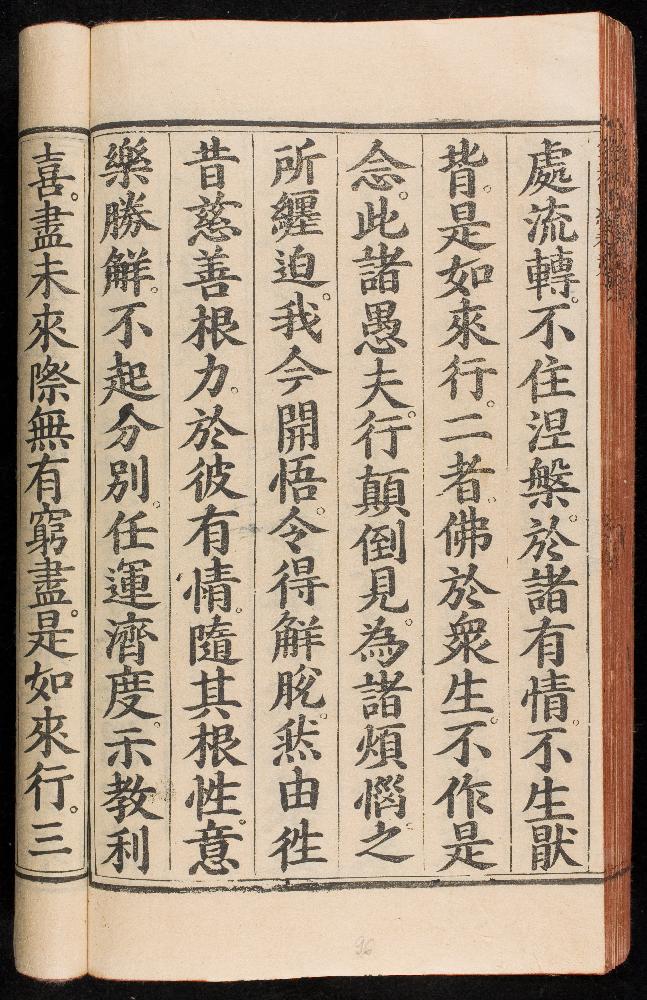 處流轉。不住涅槃。於諸有情。不生猒
背。是如來行。二者。佛於衆生。不作是
念。此諸愚夫。行顛倒見。為諸煩惱。之
所纒迫。我今開悟。令得解脫。然由徃
昔慈善根力。於彼有情。隨其根性。意
樂勝解。不起分別。任運濟度。示教利
喜。盡未來際無有窮盡。是如來行。三
96